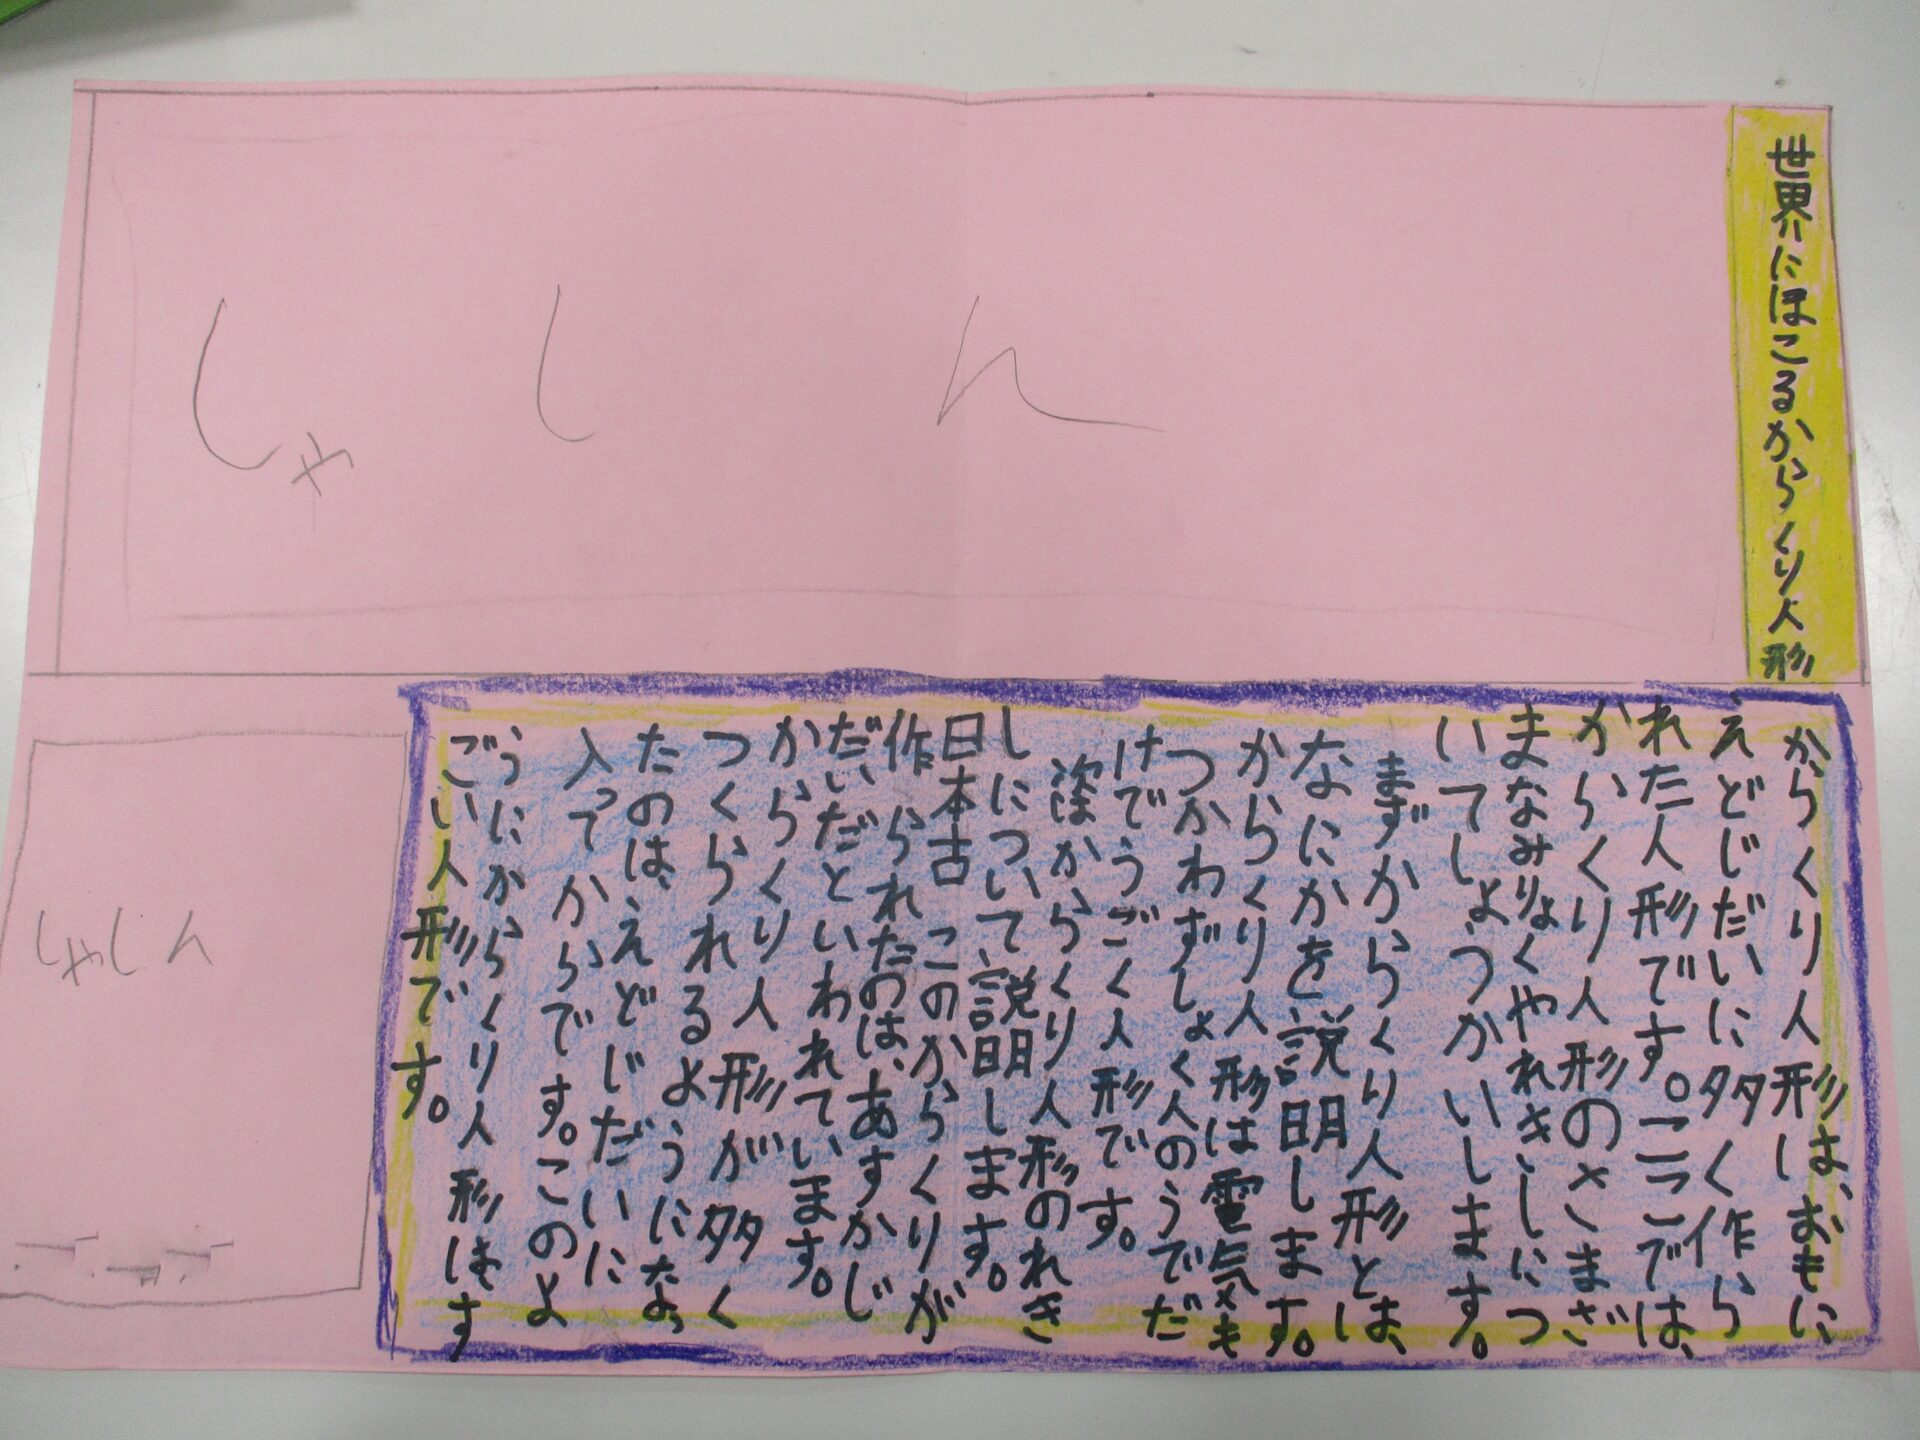 世界にほこるからくり人形
しゃしん
からくり人形は、おもに、
えどじだいに多く作ら
れた人形です。ここでは、
からくり人形のさまざ
まなみりょくやれきしにつ
いてしょうかいします。
まずからくり人形とは、
なにかを説明します。
からくり人形は電気も
つかわずしょく人のうでだ
けでうごく人形です。
次はからくり人形のれき
しについて説明します。
日本古このからくりが
作られたのは、あすかじ
だいだといわれています。
からくり人形が多く
つくられるようになっ
たのは、えどじだいに
入ってからです。このよ
うにからくり人形はす
ごい人形です。
しゃしん